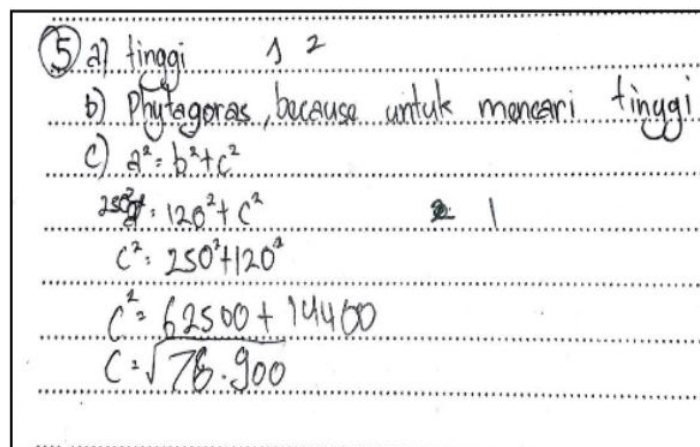 5 a) tinggi 1 2
b) Phytagoras, because untuk mencari tinggi
c) a² = b² + c²
250² = 120² + c² 1
c² = 250² + 120²
c² = 62500 + 14400
c = √78.900